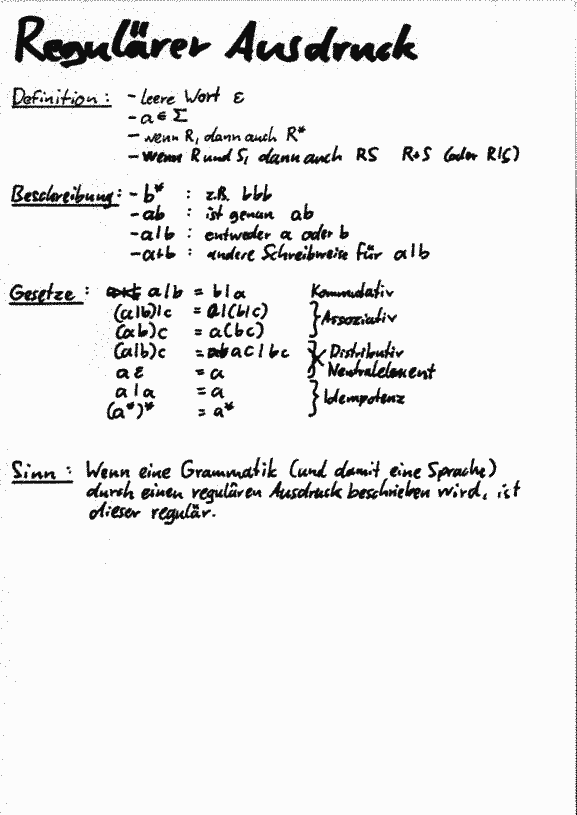 Regulärer Ausdruck
Definition: - leere Wort ε
- a ∈ Σ
- wenn R, dann auch R*
- wenn R und S, dann auch RS R+S (oder R|S)
Beschreibung: - b* : z.B. bbb
- ab : ist genau ab
- a|b : entweder a oder b
- a+b : andere Schreibweise für a|b
Gesetze: a|b = b|a Kommutativ
(a|b)|c = a|(b|c) } Assoziativ
(ab)c = a(bc)
(a|b)c = ac|bc Distributiv
aε = a Neutralelement
a|a = a } Idempotenz
(a*)* = a*
Sinn: Wenn eine Grammatik (und damit eine Sprache)
durch einen regulären Ausdruck beschrieben wird, ist
dieser regulär.